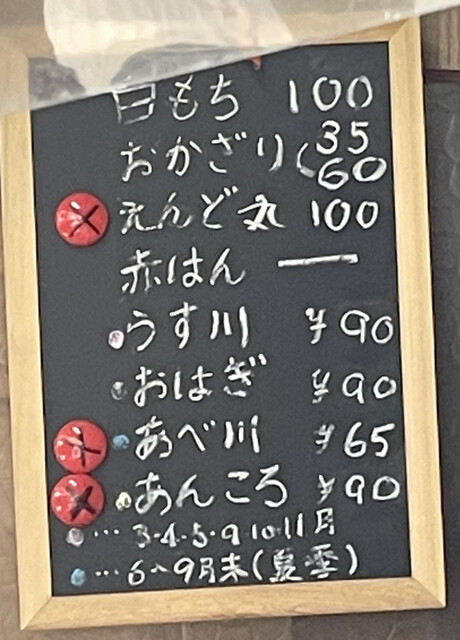 白もち 100
おかざり( 35
60
えんど丸 100
赤はん ー
うす川 ¥90
おはぎ ¥90
あべ川 ¥65
あんころ ¥90
… 3・4・5・9 10・11月
… 6〜9月末(夏季)